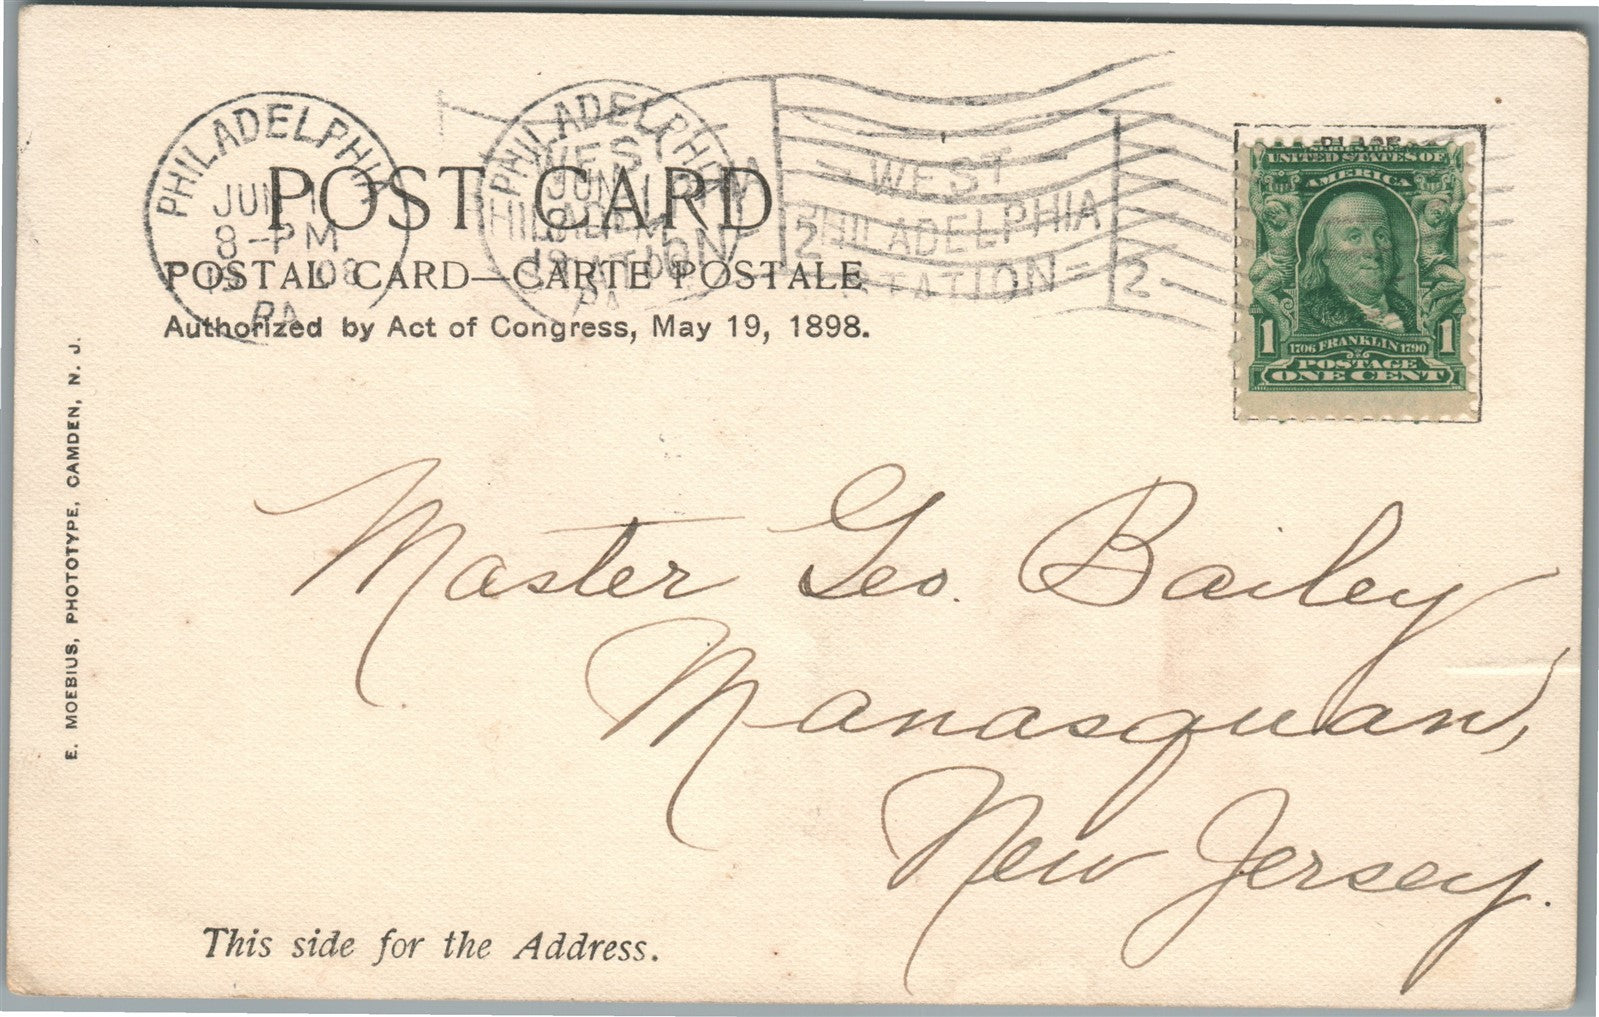 PHILADELPHIA
JUN 1
8-PM
1908
PA.
PHILADELPHIA
JUN 1
8-PM
1908
PA.
WEST
PHILADELPHIA
STATION
2
WEST
PHILADELPHIA
STATION
2
POST CARD
POSTAL CARD—CARTE POSTALE
Authorized by Act of Congress, May 19, 1898.
PLACE
SERIES 1902
UNITED STATES OF
AMERICA
1 1
1706 FRANKLIN 1790
POSTAGE
ONE CENT
E. MOEBIUS, PHOTOTYPE, CAMDEN, N. J.
Master Geo. Bailey
Manasquan,
New Jersey.
This side for the Address.